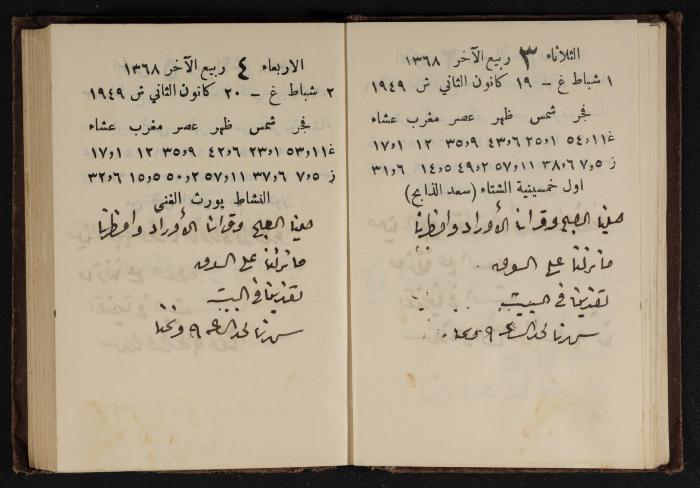 الثلاثاء ٣ ربيع الآخر ١٣٦٨
١ شباط غ – ١٩ كانون الثاني ش ١٩٤٩
فجر شمس ظهر عصر مغرب عشاء
غ ١١و٥٤ ١و٢٥ ٦و٤٣ ٩و٣٥ ١٢ ١و١٧
ز ٥و٧ ٦و٣٨ ١١و٥٧ ٢و٤٩ ٥و١٤ ٦و٣١
اول خمسينية الشتاء (سعد الذابح)
صلينا الصبح وقرأنا الأوراد وافطرنا
ما نزلنا على السوق
تغدينا في البيت
سهرنا لحد الساعة ٩ ونمنا
الاربعاء ٤ ربيع الآخر ١٣٦٨
٢ شباط غ – ٢٠ كانون الثاني ش ١٩٤٩
فجر شمس ظهر عصر مغرب عشاء
غ ١١و٥٣ ١و٢٣ ٦و٤٢ ٩و٣٥ ١٢ ١و١٧
ز ٥و٧ ٦و٣٧ ١١و٥٧ ٢و٥٠ ٥و١٥ ٦و٣٢
النشاط يورث الغنى
صلينا الصبح وقرأنا الأوراد وافطرنا
ما نزلنا على السوق
تغدينا في البيت
سهرنا لحد الساعة ٩ ونمنا